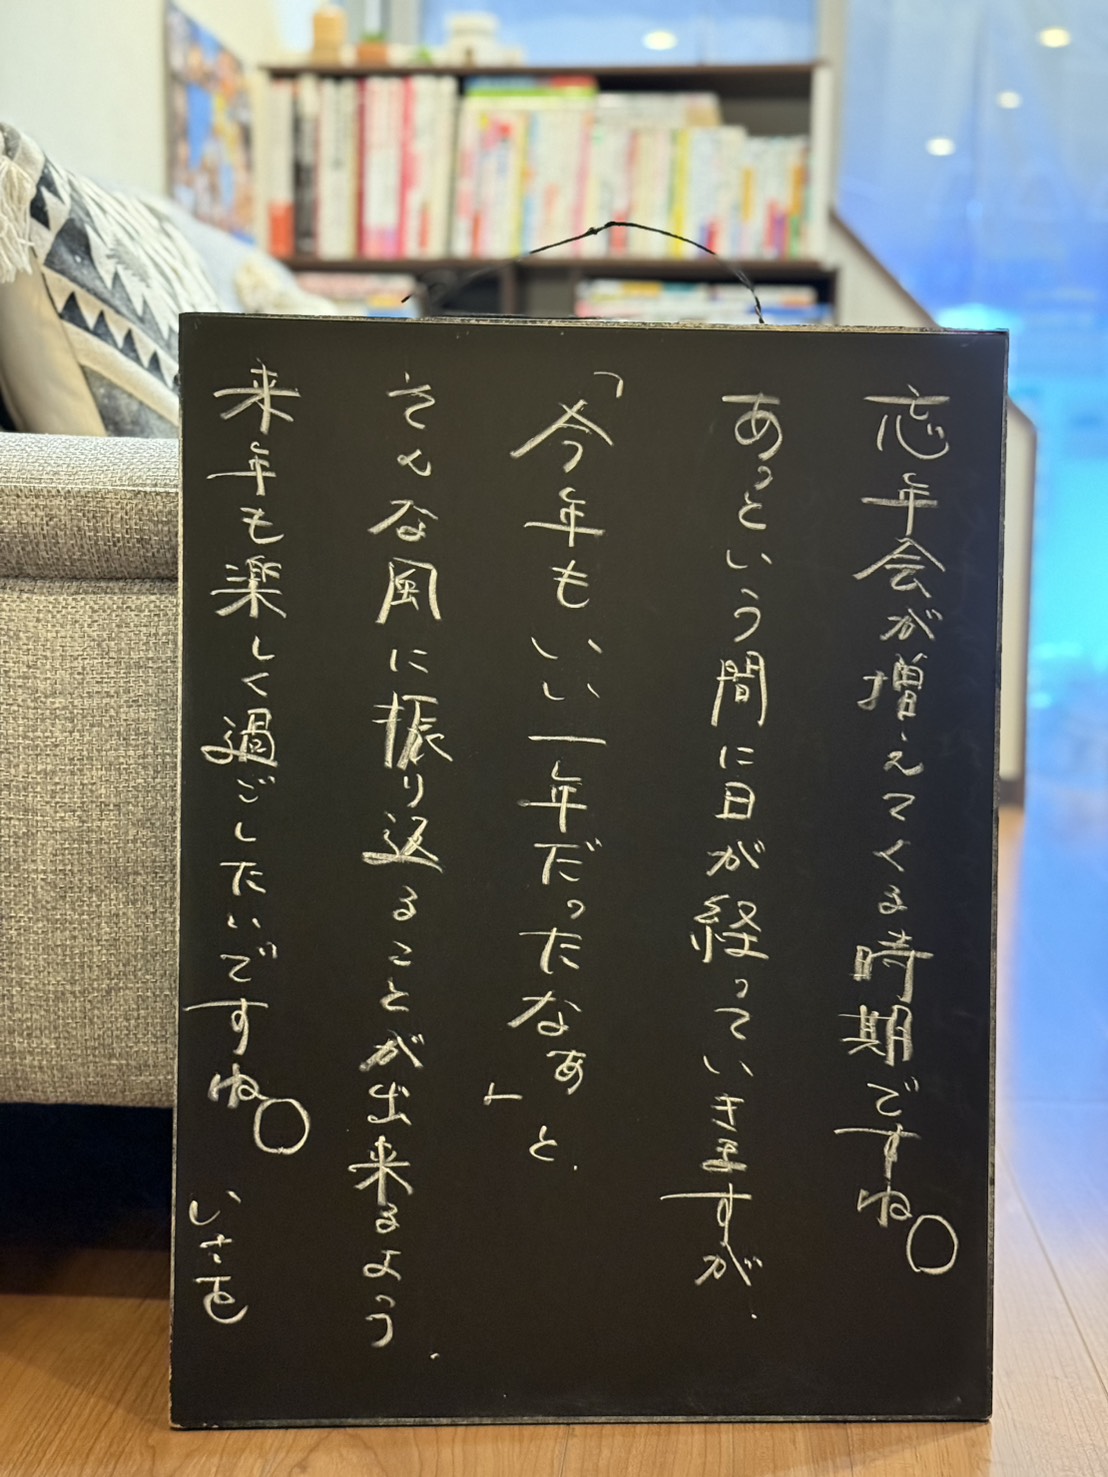 忘年会が増えてくる時期ですね。
あっという間に日が経っていきますが、
「今年もいい一年だったなぁ」と、
そんな風に振り返ることが出来るよう、
来年も楽しく過ごしたいですね。
いさを